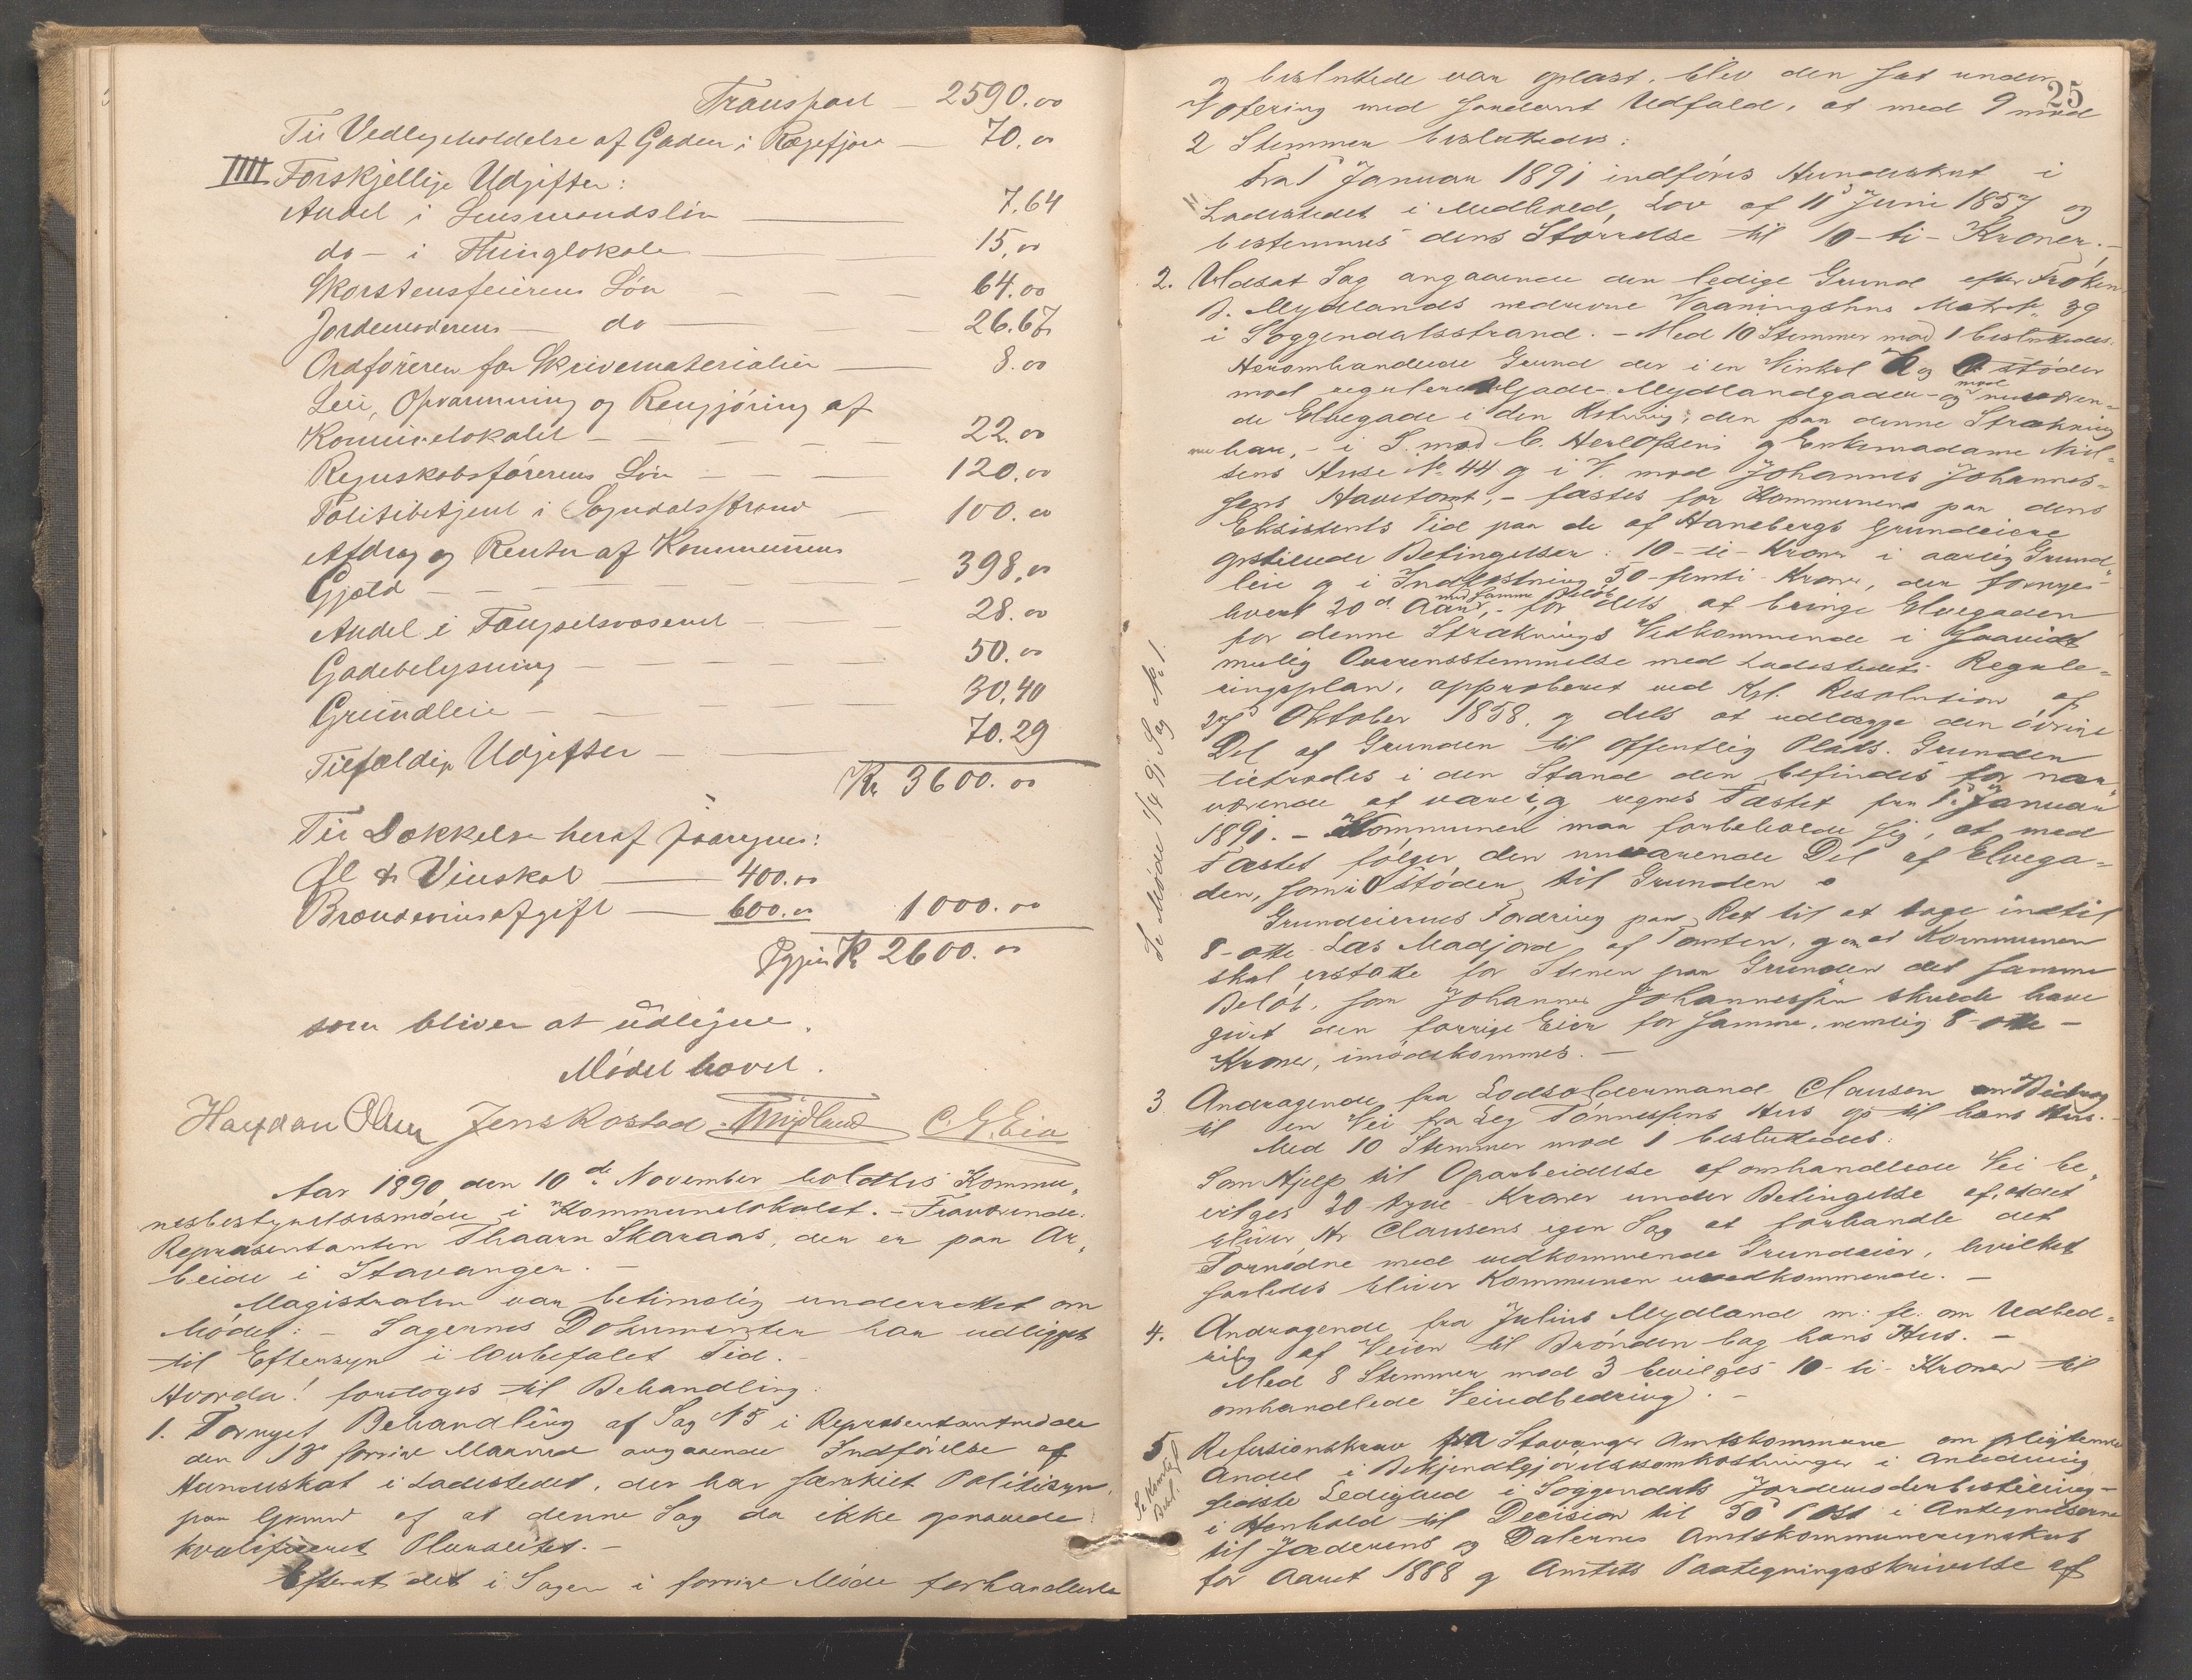 Transport — 2590.00
Til Vedligeholdelse af Gaden i Rægefjord — 70.00
IIII Forskjellige Udgifter:
Andel i Lensmandsløn — 7.64
do — i Thinglokale — 15.00
Skorstensfeierens Løn — 64.00
Jordemoderens — do — 26.67
Ordføreren for Skrivematerialier — 8.00
Leie, Opvarmning og Rengjøring af
Kommunelokalet — 22.00
Regnskabsførerens Løn — 120.00
Politibetjent i Sogndalsstrand — 100.00
Afdrag og Renter af Kommunens
Gjæld — 398.00
Andel i Fængselsvæsenet — 28.00
Gadebelysning — 50.00
Grundleie — 30.40
Tilfældige Udgifter — 70.29
Kr 3600.00
Til Dækkelse heraf paaregnes:
Øl & Vinskat — 400.00
Brændevinsafgift — 600.00 1000.00
Igjen Kr 2600.00
som bliver at udligne.
Mødet hævet.
Olsen Jens Rostad T Mydland C. G. Eia
Aar 1890 den 10de November holdtes Kommu-
nebestyrelsesmøde i Kommunelokalet. – Fraværende:
Repræsentanten Skaraas, der er paa Ar-
beide i Stavanger. –
Magistraten var betimelig underrettet om
Mødet: – Sagernes Dokumenter har udligget
til Eftersyn i lovbefalet Tid. –
Hvorda! foretoges til Behandling:
1. Fornyet Behandling af Sag N 5 i Repræsentantmøde
den 13de forrige Maaned angaaende Indførelse af
Hundeskat i Ladestedet, der har særskilt Politisyn.
paa Grund af at denne Sag da ikke opnaaede
kvalificeret Pluralitet. –
Efterat det i Sagen i forrige Møde forhandlede
25
og besluttede var oplæst, blev den sat under
Votering med saadant Udfald, at med 9 mod
2 Stemmer besluttedes:
Fra 1 Januar 1891 indføres Hundeskat i
Ladestedet i Medhold Lov af 11 Juni 1857 og
bestemmes dens Størrelse til 10 – ti – Kroner. –
2. Udsat Sag angaaende den ledige Grund efter Frøken
B. Mydlands nedrevne Vaaningshus Matr. № 39
i Soggendalsstrand. – Med 10 Stemmer mod 1 besluttedes:
Heromhandlede Grund der i en Vinkel og støder
mod regulerede Gade – Mydlandgaden – og mod nuværen-
de Elvegade i den Retning, den paa denne Strækning
nu har, – i S. mod C. Herlofsens og Enkemadame Niel-
sens Huse № 44 og i V. mod Johannes Johannes-
sens Havetomt, – fæstes for Kommunens paa dens
Eksistents Tid paa de af Hanebergs Grundeiere
opstillede Betingelser: 10 – ti – Kroner i aarlig Grund-
leie og i Indfæstning 50 – femti – Kroner, der fornyes
hvert 20de Aar med samme Beløb, – for dels at bringe Elvegaden
for denne Stræknings Vedkommende i saavidt
mulig Overensstemmelse med Ladestedets Regule-
ringsplan, approberet ved Kgl. Resolution af
27 Oktober 1858, og dels at udlægge den øvrige
Del af Grunden til offentlig Plads. Grunden
tiltrædes i den Stand den befindes for nær-
værende at være i, og regnes Fæstet fra 1. Januar
1891. – Kommunen maa forbeholde sig, at med
Fæstet følger den nuværende Del af Elvega-
den, som i Ø støder til Grunden.
Grundeiernes Fordring paa Ret til at tage indtil
8 – otte Læs Madjord af Tomten, og at Kommunen
skal erstatte for Stenen paa Grunden det samme
Beløb, som Johannes Johannessen skulde have
givet den forrige Eier for samme, nemlig 8 – otte –
Kroner, imødekommes. –
Se Møde 1/4 91 Sag № 1.
3 Andragende fra Lodsoldermand Clausen om Bidrag
til en Vei fra Leg Tønnessens Hus op til hans Hus. –
Med 10 Stemmer mod 1 besluttedes:
Som Hjælp til Oparbeidelse af omhandlede Vei be-
vilges 20 – tyve – Kroner under Betingelse af, at det
bliver Hr Clausens egen Sag at forhandle det
Fornødne med vedkommende Grundeier, hvilket
saaledes bliver Kommunen uvedkommende. –
4. Andragende fra Julius Mydland m: fl: om Udbed-
ring af Veien til Brønden bag hans Hus. –
Med 8 Stemmer mod 3 bevilges 10 – ti – Kroner til
omhandlede Veiudbedring. –
5 Refusionskrav fra Stavanger Amtskommune om pligtende
Andel i Bekjendtgjørelsesomkostninger i Anledning
sidste Ledighed i Soggendals Jordemoderbestilling –
i Henhold til Decision til 50 Post i Antegnelserne
til Jæderens og Dalernes Amtskommuneregnskab
for Aaret 1888 og Amtets Paategningsskrivelse af